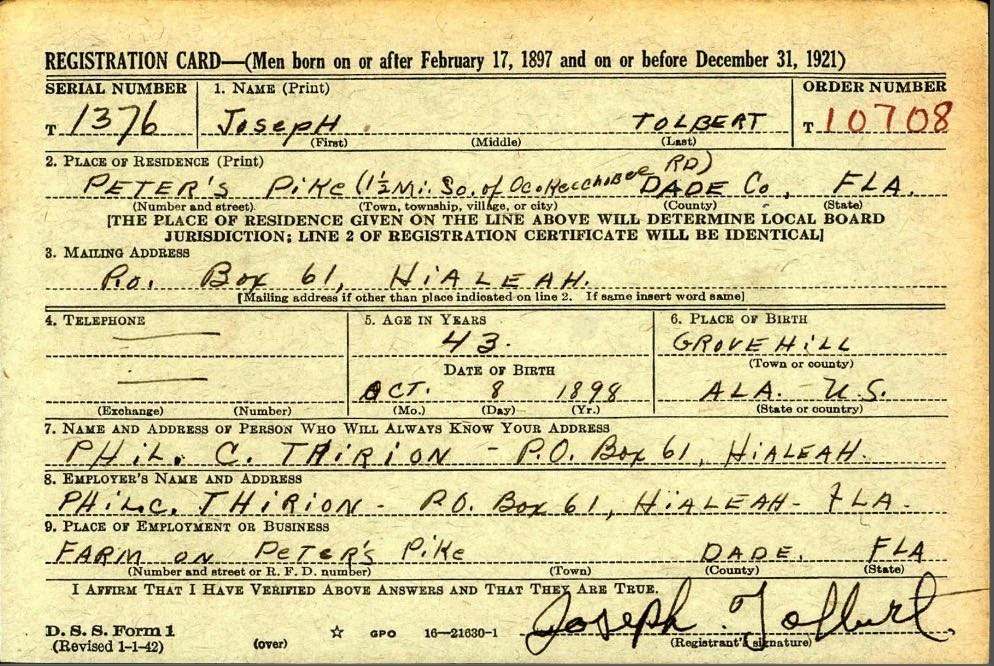 REGISTRATION CARD—(Men born on or after February 17, 1897 and on or before December 31, 1921)
SERIAL NUMBER 1. NAME (Print) ORDER NUMBER
T 1376 JOSEPH TOLBERT T 10708
(First) (Middle) (Last)
2. PLACE OF RESIDENCE (Print)
PETER'S PIKE (1½ Mi. So. of Ocokeechobee RD) DADE Co, FLA.
(Number and street) (Town, township, village, or city) (County) (State)
[THE PLACE OF RESIDENCE GIVEN ON THE LINE ABOVE WILL DETERMINE LOCAL BOARD
JURISDICTION; LINE 2 OF REGISTRATION CERTIFICATE WILL BE IDENTICAL]
3. MAILING ADDRESS
P.O. Box 61, HIALEAH.
[Mailing address if other than place indicated on line 2. If same insert word same]
4. TELEPHONE 5. AGE IN YEARS 6. PLACE OF BIRTH
43. GROVE HILL
DATE OF BIRTH (Town or county)
OCT. 8 1898 ALA. U.S.
(Exchange) (Number) (Mo.) (Day) (Yr.) (State or country)
7. NAME AND ADDRESS OF PERSON WHO WILL ALWAYS KNOW YOUR ADDRESS
PHIL. C. THIRION - P.O. Box 61, HIALEAH.
8. EMPLOYER'S NAME AND ADDRESS
PHIL.C. THIRION - P.O. Box 61, HIALEAH - FLA.
9. PLACE OF EMPLOYMENT OR BUSINESS
FARM ON PETER'S PIKE DADE. FLA
(Number and street or R. F. D. number) (Town) (County) (State)
I AFFIRM THAT I HAVE VERIFIED ABOVE ANSWERS AND THAT THEY ARE TRUE.
Joseph Tolbert
D. S. S. Form 1
(Revised 1-1-42) (over) ☆ GPO 16—21630-1 (Registrant's signature)